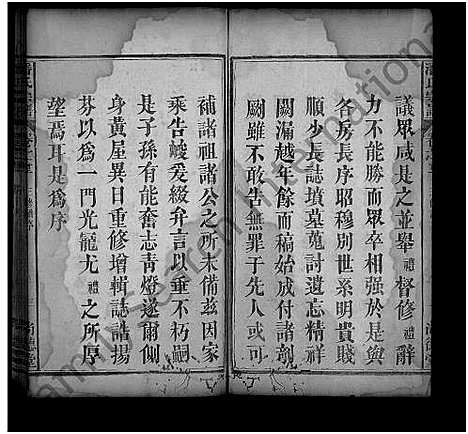 議眾咸是之並舉禮督修禮辭
力不能勝而眾卒相強於是與
各房長序昭穆別世系明貴賤
順少長誌墳墓蒐討遺忘精祥
闕漏越年餘而稿始成付諸剞
劂雖不敢告無罪于先人或可
補諸祖諸公之所未備茲因家
乘告竣爰綴弁言以垂不朽嗣
是子孫有能奮志青燈遂爾側
身黃屋異日重修增輯誌誥揚
芬以為一門光寵尤禮之所厚
望焉耳是為序